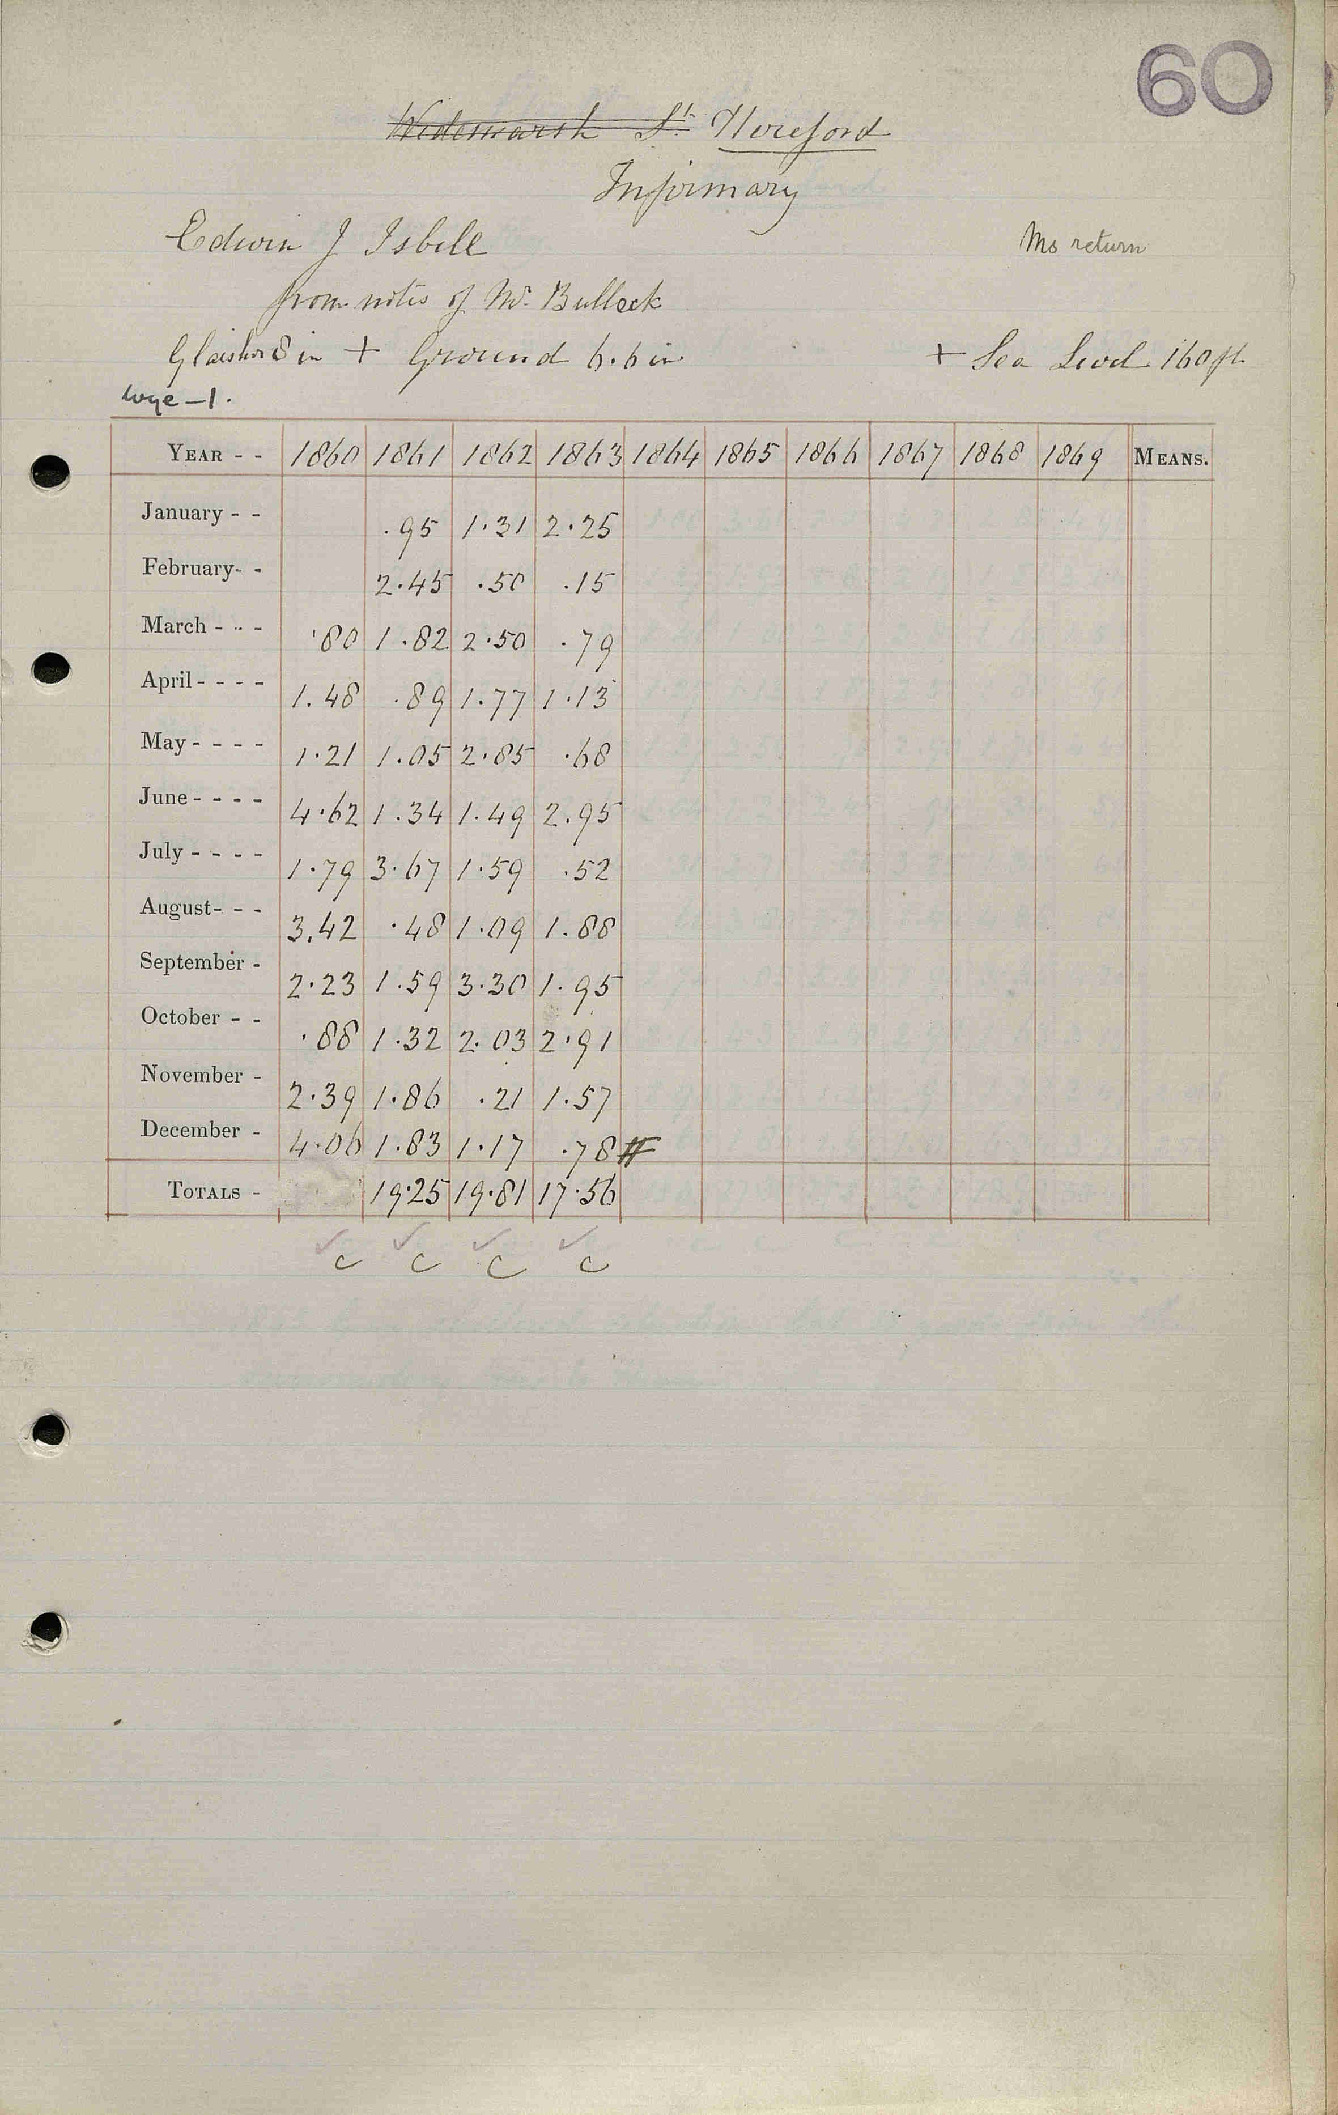 60
Widemarsh St. Hereford
Infirmary
Edwin J Isbell
Ms return
from notes of Mr. Bullock
Glaisher 8 in + Ground 6.6 in + Sea Level 160 ft
Wye - 1.
YEAR - - 1860 1861 1862 1863 1864 1865 1866 1867 1868 1869 MEANS.
January - - .95 1.31 2.25
February- - 2.45 .50 .15
March - - - .80 1.82 2.50 .79
April - - - - 1.48 .89 1.77 1.13
May - - - - 1.21 1.05 2.85 .68
June - - - - 4.62 1.34 1.49 2.95
July - - - - 1.79 3.67 1.59 .52
August- - - 3.42 .48 1.09 1.88
September - 2.23 1.59 3.30 1.95
October - - .88 1.32 2.03 2.91
November - 2.39 1.86 .21 1.57
December - 4.06 1.83 1.17 .78 #
TOTALS - 19.25 19.81 17.56
✓ ✓ ✓ ✓
C C C C